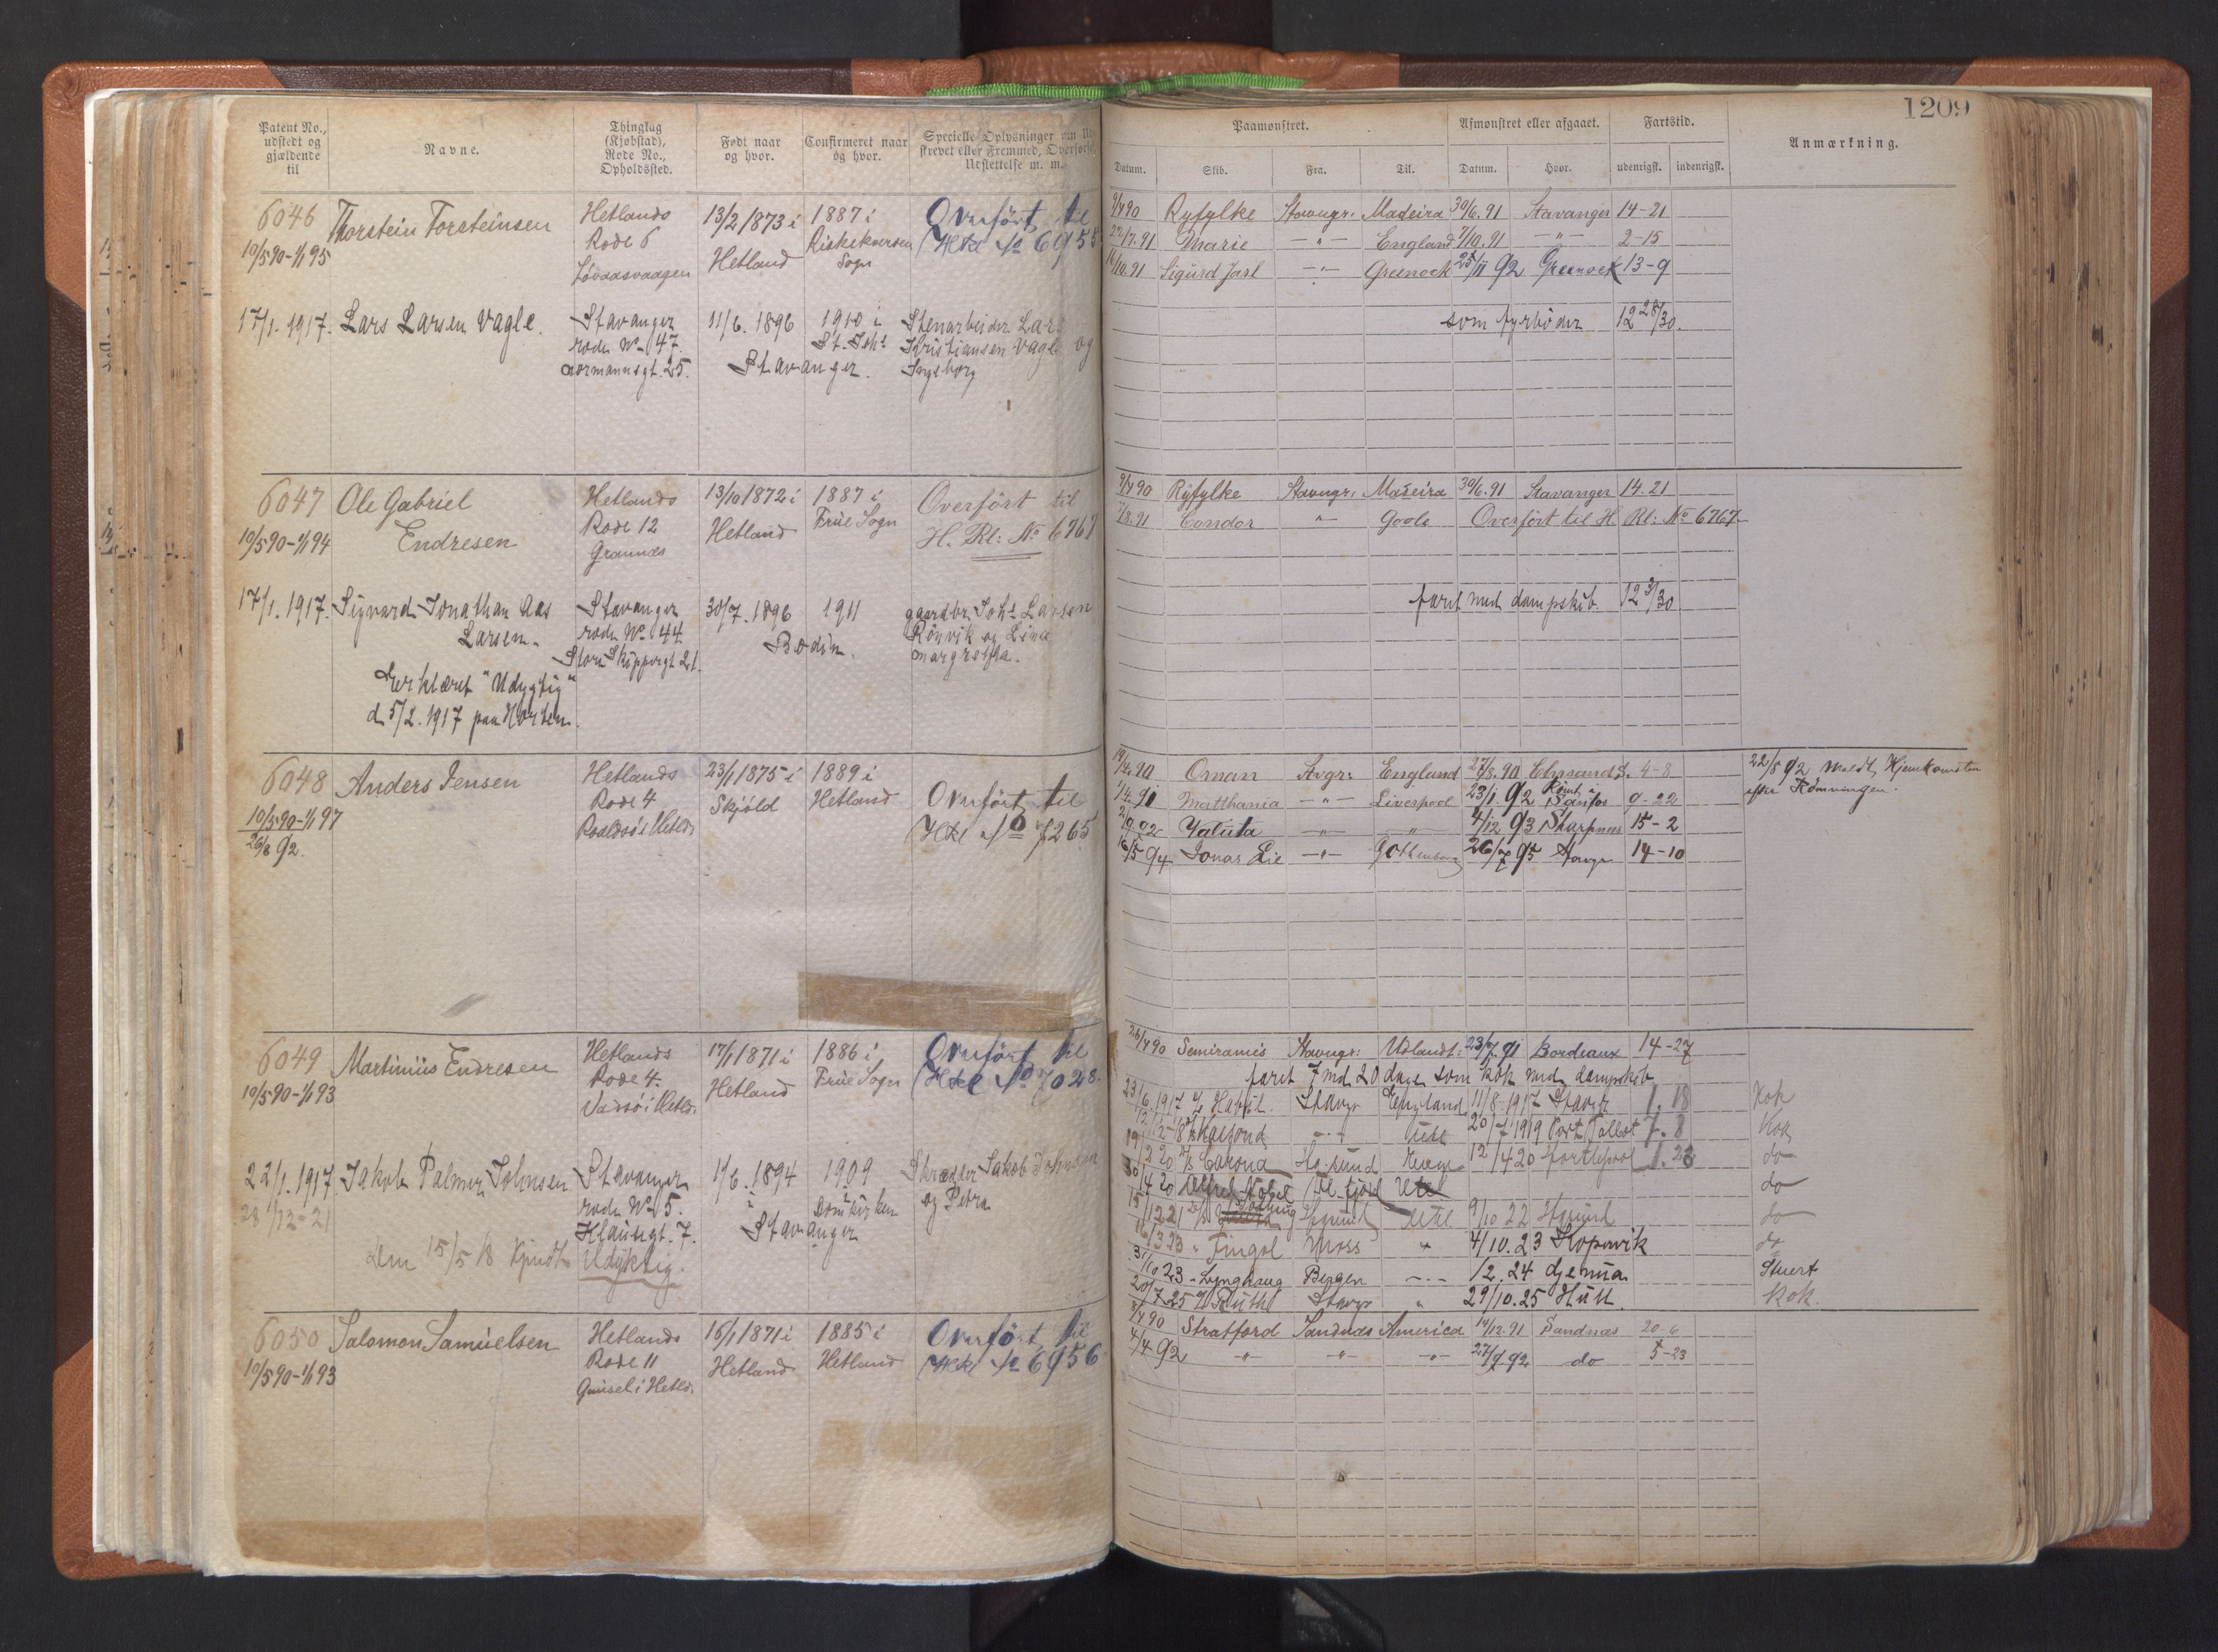 1209
Patent No., udstedt og gjældende til
Navne.
Thinglag (Kjøbstad), Rode No., Opholdssted.
Født naar og hvor.
Confirmeret naar og hvor.
Specielle Oplysninger
skrevet eller Fremmed, Overførsel,
Udslettelse m. m.
Paamønstret.
Afmønstret eller afgaaet.
Fartstid.
Anmærkning.
Datum. Skib. Fra. Til. Datum. Hvor. udenrigsk. indenrigsk.
6046 Thorstein Torsteinsen Hetlands 13/2 1873 i 1887 i Overført til
10/5 90-1/1 95 Rode 6 Hetland Sogn H Rl No 6955
9/4 90 Ryfylke Stavngr: Madeira 30/6.91 Stavanger 14-21
22/7.91 Marie -"- England 7/10.91 -"- 2-15
/10.91 Sigurd Jarl -"- Greenock 25/11 92 Greenock 13-9
17/1.1917. Lars Larsen Vagle. Stavanger 11/6.1896 1910 i Stenarbeider Lars
rode No 47 St. Johs Kristiansen Vagle og
25. Stavanger. Ingeborg
som fyrbøder 12 28/30.
6047 Ole Gabriel Hetlands 13/10 1872 i 1887 i Overført til
10/5 90-1/1 94 Endresen Rode 12 Hetland Frue Sogn H. Rl: No 6767
Grannes
9/4 90 Ryfylke Stavngr: Madeira 30/6.91 Stavanger 14.21
/8.91 Condor " Goole Overført til H Rl: No 6767
17/1.1917. Sigvard Jonathan Aas Stavanger 30/7.1896 1911 gaardbr. Johs Larsen
Larsen. rode No 44 Bodin. Rønvik og Line
Store Skippergt 21. Margretha.
Erklæret "Udygtig"
d 5/2.1917 paa Horten.
faret med dampskib. 12 3/30
6048 Anders Jensen Hetlands 23/1 1875 i 1889 i Overført til
10/5 90-1/1 97 Rode 4 Skjold Hetland H Rl No 7265
26/8 92.
19/4.90 Oman Svgr: England 27/8.90 4-8
Matthania -"- Liverpool 23/1 92 Santos 9-22
2/9.92 -"- " 4/12 93 Sharpness 15-2
16/5 94 Jonas Lie -"- Gothenborg 26/7 95 14-10
22/8 92 meldt Hjemkomsten
efter Rømningen.
6049 Martinius Endresen Hetlands 17/1 1871 i 1886 i Overført til
10/5 90-1/1 93 Rode 4. Hetland Frue Sogn H Rl No 7028
26/4 90 Semiramis Stavngr: Udlandt: 23/7.91 Bordeaux 14-27
faret 7 md 20 dage som kok med dampskib
22/1.1917 Jakob Palmer Johnsen Stavanger 1/6.1894 1909 Skrædder Jakob Johnsen
28/12-21 rode No 5. i Domkirken og Petra
Klausegt. 7. Stavanger
Den 15/5 18 Kjendt Udyktig.
23/6.1917 Stavgr England 11/8-1917 Stavgr 1.18 Kok
-"- Utl 20/7 1919 Port Talbot 7.8 Kok
Carona Hg.sund 12/4 20 Hartlepool 1.23 do
30/4 20 Alfred Nobel Utl do
15/12 21 Utl 9/10 22 Hgsund do
16/3 23 " Fingal Moss " 4/10.23 Kopervik do
3/10 23 - Lynghaug Bergen -"- /2.24 Genua Stuert
20/7 25 Ruth Stavgr " 29/10.25 Hull. Kok.
6050 Salomon Samuelsen Hetlands 16/1 1871 i 1885 i Overført til
10/5 90-1/1 93 Rode 11 Hetland Hetland H Rl No 6956
8/4 90 Stratford Sandnæs America 14/12.91 Sandnæs 20-6
4/4 92 -"- -"- -"- 27/9 92 do 5-23